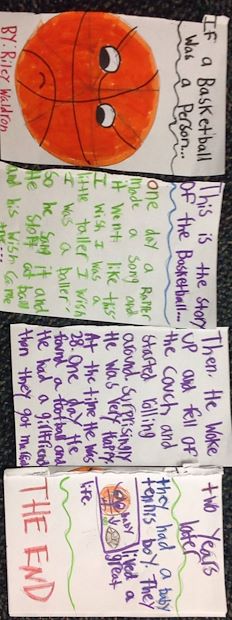 If a Basketball
Was a Person...
BY: Riley Waldron
This is the story
of the Basketball...
One day a Baller
made a song and
it went like this
I wish I was a
little taller I wish
I was a baller"
So he sang it and
he shot a ball
and his wish came
Then He woke
up and fell of
the couch and
started rolling
around. Surprisingly
He was very happy
At the time He was
28. One day He
found a football and
He had a girlfriend
then they got married
two years
later
they had a baby
tennis boy. They
lived a
great
life
THE END